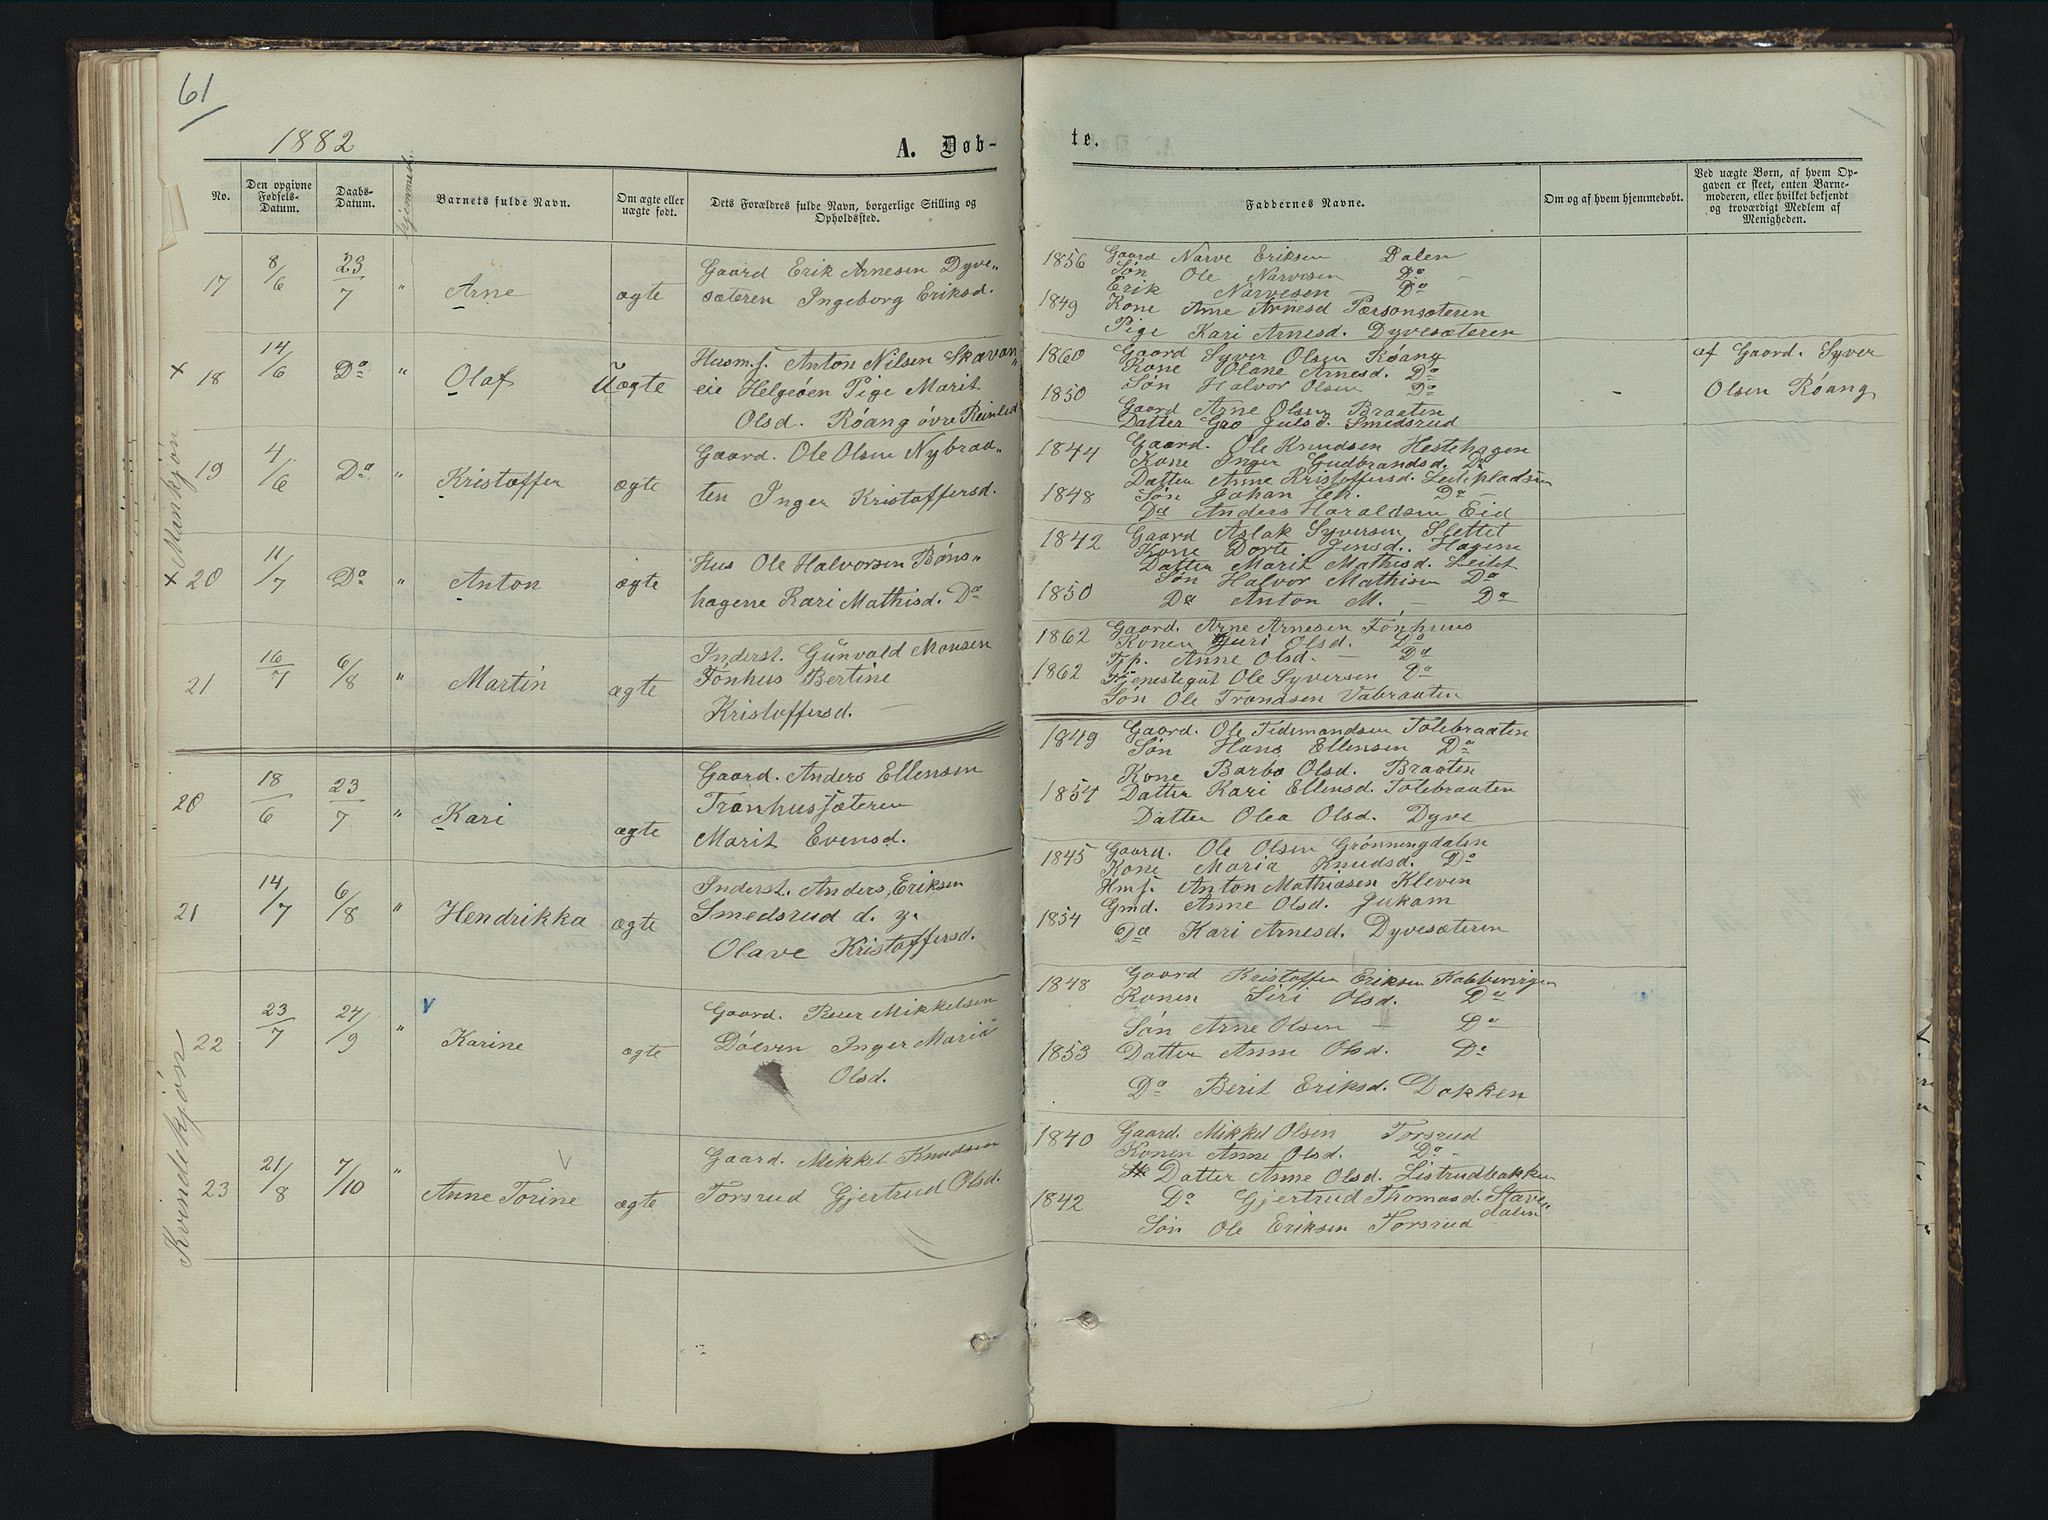 61
1882
A. Døb-
te.
No.
Den opgivne Fødsels-Datum.
Daabs-Datum.
Hjemmed.
Barnets fulde Navn.
Om ægte eller uægte født.
Dets Forældres fulde Navn, borgerlige Stilling og Opholdssted.
Faddernes Navne.
Om og af hvem hjemmedøbt.
Ved uægte Børn, af hvem Op-
gaven er skeet, enten Barne-
moderen, eller hvilket bekjendt
og troværdigt Medlem af
Menigheden.
Mankjøn
17 8/6 23/7 " Arne ægte
Gaard Erik Arnesen Dyve-
sæteren Ingeborg Eriksd.
1856 Gaard Narve Eriksen Dalen
Søn Ole Narvesen Do
Erik Narvesen — Do
1849 Kone Arne Arnesd Pærsonsæteren
Pige Kari Arnesd. Dyvesæteren
x 18 14/6 Do " Olaf Uægte
Husm.s. Anton Nilsen Skavan"
eie Helgeøen Pige Marit
Olsd. Røang øvre Reinlid
1860 Gaard Syver Olsen Røang
Kone Olane Arnesd. Do
1850 Søn Halvor Olsen Do
Gaard Arne Olsen Braaten
Datter Gro Julsd. Smedsrud
af Gaard. Syver
Olsen Røang
19 4/6 Do " Kristoffer ægte
Gaard. Ole Olsen Nybraa"
ten Inger Kristoffersd.
1844 Gaard. Ole Knudsen Hestehagen
Kone Inger Gudbrandsd. Do
Datter Anne Kristoffersd. Leitepladsen
1848 Søn Johan Do
Do Anders Haraldsen Eid
x 20 11/7 Do " Anton ægte
Hus Ole Halvorsen Bøns"
hagene Kari Mathisd. Do
1842 Gaard Aslak Syversen Slettet
Kone Dorte Jensd. Hagene
Datter Marit Mathisd. Leitet
1850 Søn Halvor Mathisen Do
Do Anton M. — Do
21 16/7 6/8 " Martin ægte
Inderst. Gunvald Monsen
Tønhus Bertine
Kristoffersd. —
1862 Gaard. Arne Arnesen Tønhuus
Konen Guri Olsd. Do
1862 Tjp. Anne Olsd. — Do
Tjenestegut Ole Syversen Do
Søn Ole Trondsen Vabraaten
Kvindekjøn
20 18/6 23/7 " Kari ægte
Gaard. Anders Ellensen
Trønhussæteren
Marit Evensd.
1849 Gaard. Ole Tidemandsen Tolebraaten
Søn Hans Ellensen Do
Kone Barbo Olsd. Braaten
1854 Datter Kari Ellensd. Tolebraaten
Datter Olea Olsd. Dyve
21 14/7 6/8 " Hendrikka ægte
Inderst. Anders Eriksen
Smedsrud d. y.
Olave Kristoffersd.
1845 Gaard. Ole Olsen Grønningdalen
Kone Maria Knudsd. Do
Hms. Anton Mathiasen Kleven
1854 Gmd. Anne Olsd. Jukam
Do Kari Arnesd. Dyvesæteren
22 23/7 24/9 " Karine ægte
Gaard. Peer Mikkelsen
Dølven Inger Maria
Olsd.
1848 Gaard Kristoffer Eriksen
Konen Siri Olsd. Do
Søn Arne Olsen — Do
1853 Datter Anne Olsd. Do
Do Berit Eriksd. Dokken
23 21/8 7/10 " Anne Torine ægte
Gaard. Mikkel Knudsen
Torsrud Gjertrud Olsd.
1840 Gaard. Mikkel Olsen Torsrud
Konen Anne Olsd. Do
Datter Anne Olsd. Listrudbakken
1842 Do Gjertrud Thomasd. Stave-
dalen
Søn Ole Eriksen Torsrud